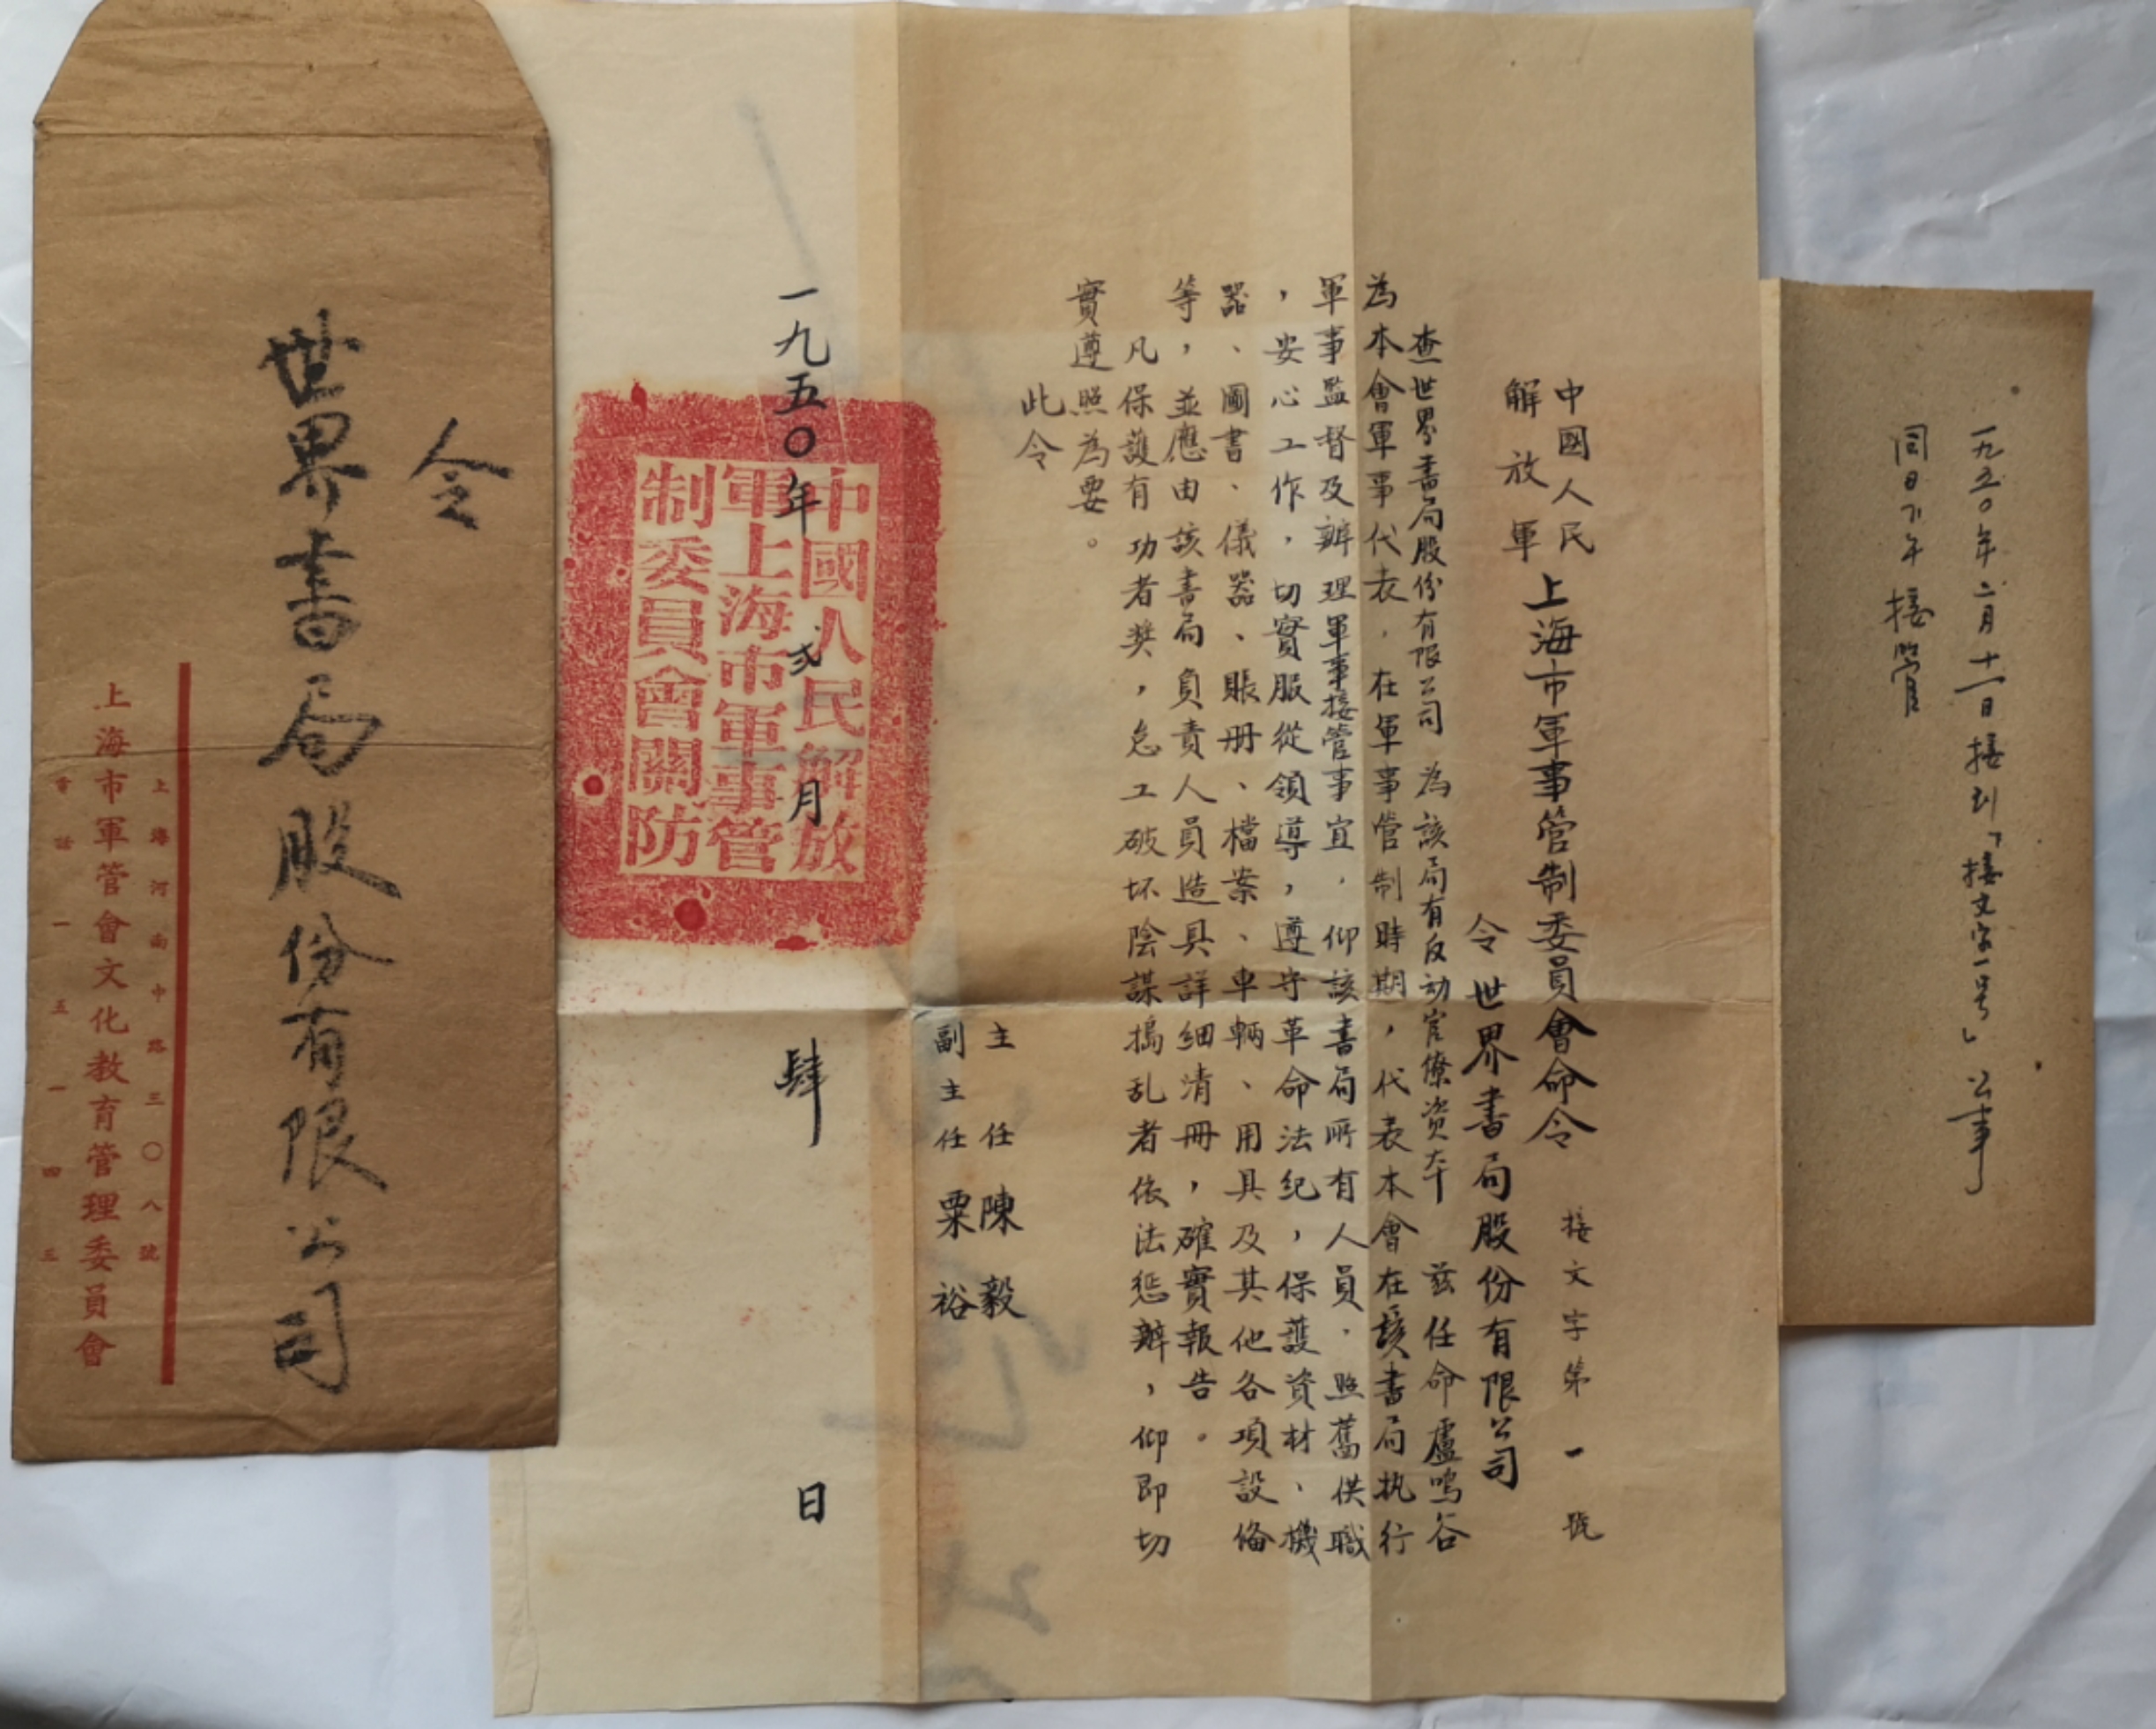 一九五〇年二月十一日接到「接文字一号」公事
同日下午接管
中國人民
解放軍
上海市軍事管制委員會命令
接文字第一號
令世界書局股份有限公司
查世界書局股份有限公司為該局有反动官僚資本茲任命盧鳴谷
為本會軍事代表，在軍事管制時期，代表本會在該書局执行
軍事監督及辦理軍事接管事宜，仰該書局所有人員，照舊供職
，安心工作，切實服從領導，遵守革命法紀，保護資材、機
器、圖書、儀器、賬册、檔案、車輛、用具及其他各項設俻
等，並應由該書局負責人員造具詳細清冊，確實報告。
凡保護有功者奖，怠工破坏陰謀搗乱者依法惩辦，仰即切
實遵照為要。
此令
主任陳毅
副主任粟裕
一九五〇年弍月肆日
中國人民解放
軍上海市軍事管
制委員會關防
令
世界書局股份有限公司
上海河南中路三〇八號
上海市軍管會文化教育管理委員會
電話一五一四三